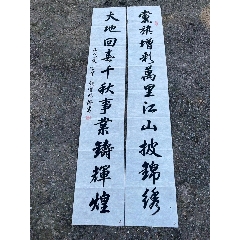 党旗增彩萬里江山披錦綉
大地回春千秋事業鑄輝煌